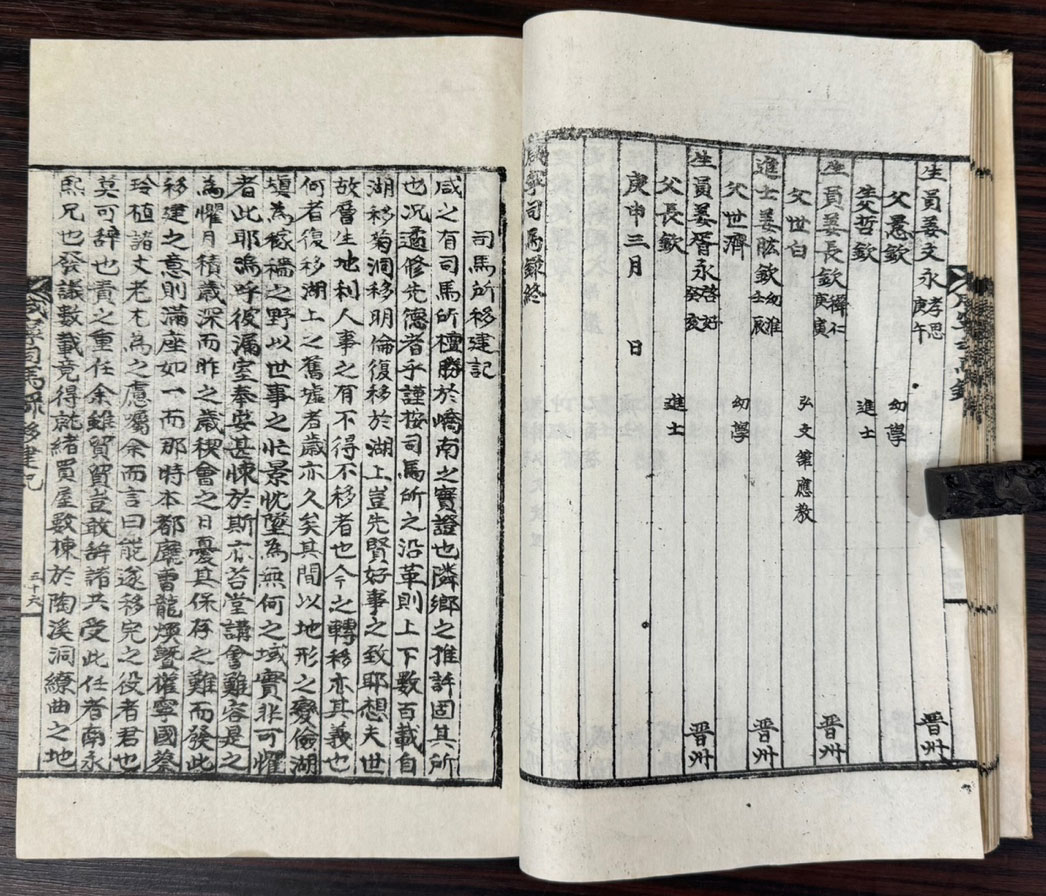 生員姜文永 孝思 庚午 晋州
父愚欽 幼學
生父哲欽 進士
生員姜長欽 穉仁 庚寅 晋州
父世白 弘文館應敎
進士姜肱欽 幼維 壬辰 晋州
父世濟 幼學
生員姜胥永 啓好 癸亥 晋州
父長欽 進士
庚申三月 日
咸寧司馬錄終
司馬所移建記
咸之有司馬所檀勝於嶠南之實證也隣鄉之推許固其所
也况遹修先德者乎謹按司馬所之沿革則上下數百載自
湖移菊洞移明倫復移於湖上豈先賢好事之致耶想夫世
故層生地利人事之有不得不移者也今之轉移亦其義也
何者復移湖上之舊墟者歲亦久矣其間以地形之變倫湖
塡為稼穡之野以世事之忙景忱墜為無何之域實非可懼
者此耶嗚呼彼漏室奉安甚悚於斯亦苔堂講會難容是之
為懼月積歲深而昨之歲稧會之日憂其保存之難而發此
移建之意則滿座如一而那時本都廳曺龍煥曁權寧國蔡
玲植諸丈老尤為之慮屬余而言曰能遂移完之役者君也
莫可辞也責之重任余雖貿貿豈敢辞諸共受此任者南永
熙兄也發議數載竟得就緖買屋數棟於陶溪洞繚曲之地
咸寧司馬錄 移建記 五十六